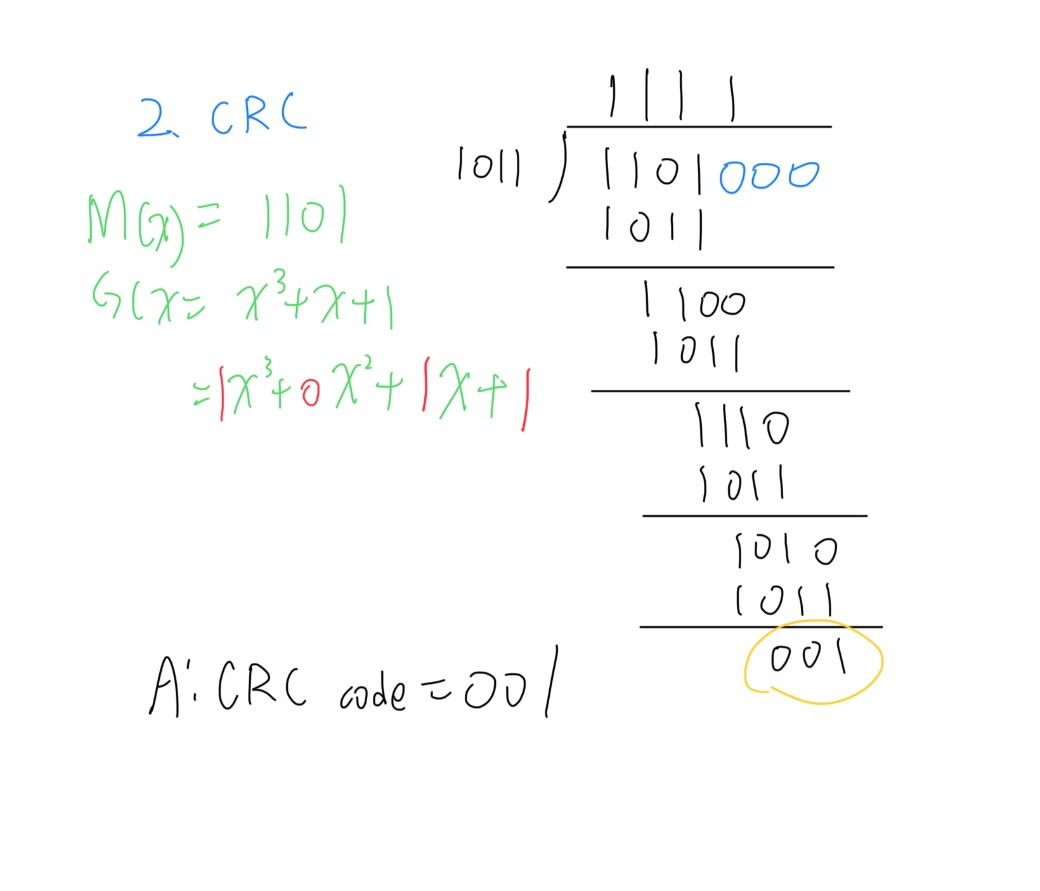 2. CRC
M(x) = 1101
G(x = x³+x+1
=1x³+0x²+1x+1
1111
1011 ) 1101000
1011
1100
1011
1110
1011
1010
1011
001
A: CRC code = 001